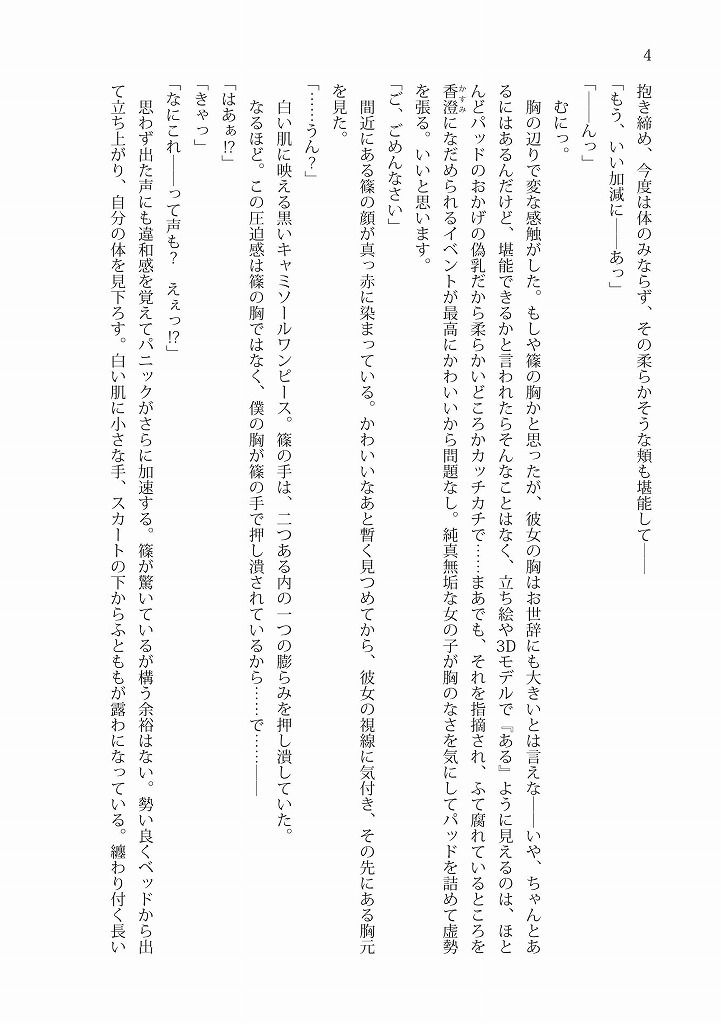 4
抱き締め、今度は体のみならず、その柔らかそうな頬も堪能して――
「もう、いい加減に――あっ」
「――んっ」
むにっ。
胸の辺りで変な感触がした。もしや篠の胸かと思ったが、彼女の胸はお世辞にも大きいとは言えな――いや、ちゃんとあ
るにはあるんだけど、堪能できるかと言われたらそんなことはなく、立ち絵や3Dモデルで『ある』ように見えるのは、ほと
んどパッドのおかげの偽乳だから柔らかいどころかカッチカチで……まあでも、それを指摘され、ふて腐れているところを
香澄かすみになだめられるイベントが最高にかわいいから問題なし。純真無垢な女の子が胸のなさを気にしてパッドを詰めて虚勢
を張る。いいと思います。
「ご、ごめんなさい」
間近にある篠の顔が真っ赤に染まっている。かわいいなあと暫く見つめてから、彼女の視線に気付き、その先にある胸元
を見た。
「……うん？」
白い肌に映える黒いキャミソールワンピース。篠の手は、二つある内の一つの膨らみを押し潰していた。
なるほど。この圧迫感は篠の胸ではなく、僕の胸が篠の手で押し潰されているから……で……――
「はあぁ!?」
「きゃっ」
「なにこれ――って声も？　えぇっ!?」
思わず出た声にも違和感を覚えてパニックがさらに加速する。篠が驚いているが構う余裕はない。勢い良くベッドから出
て立ち上がり、自分の体を見下ろす。白い肌に小さな手、スカートの下からふとももが露わになっている。纏わり付く長い